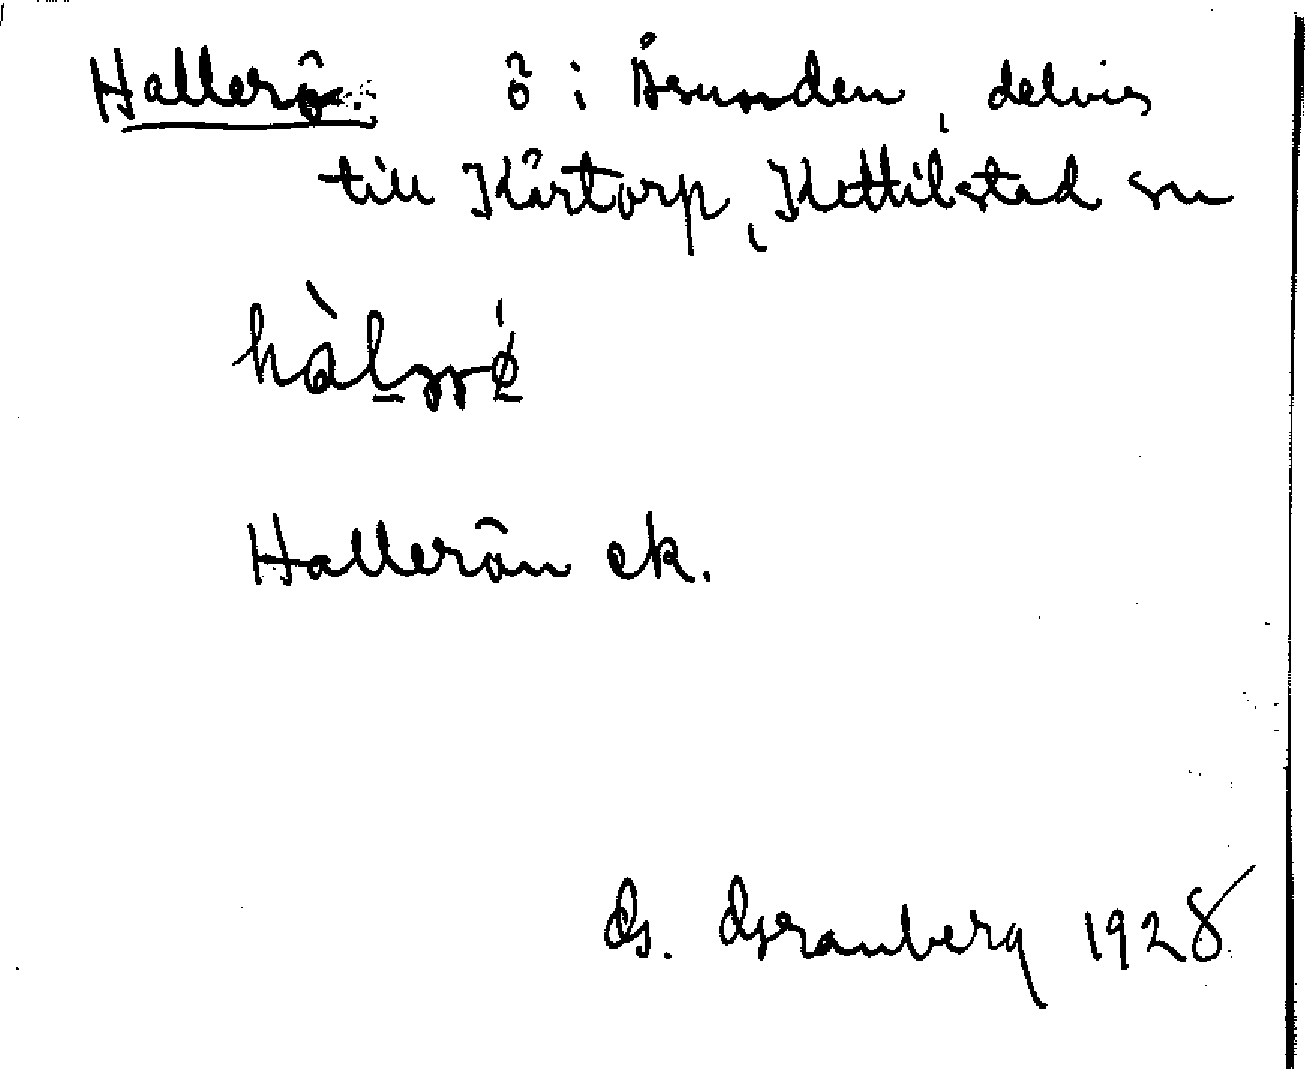 Hallerö ö i Åsunden, delvis
till Kårtorp, Kettilstad sn
Hallerön ek.
G. Granberg 1928